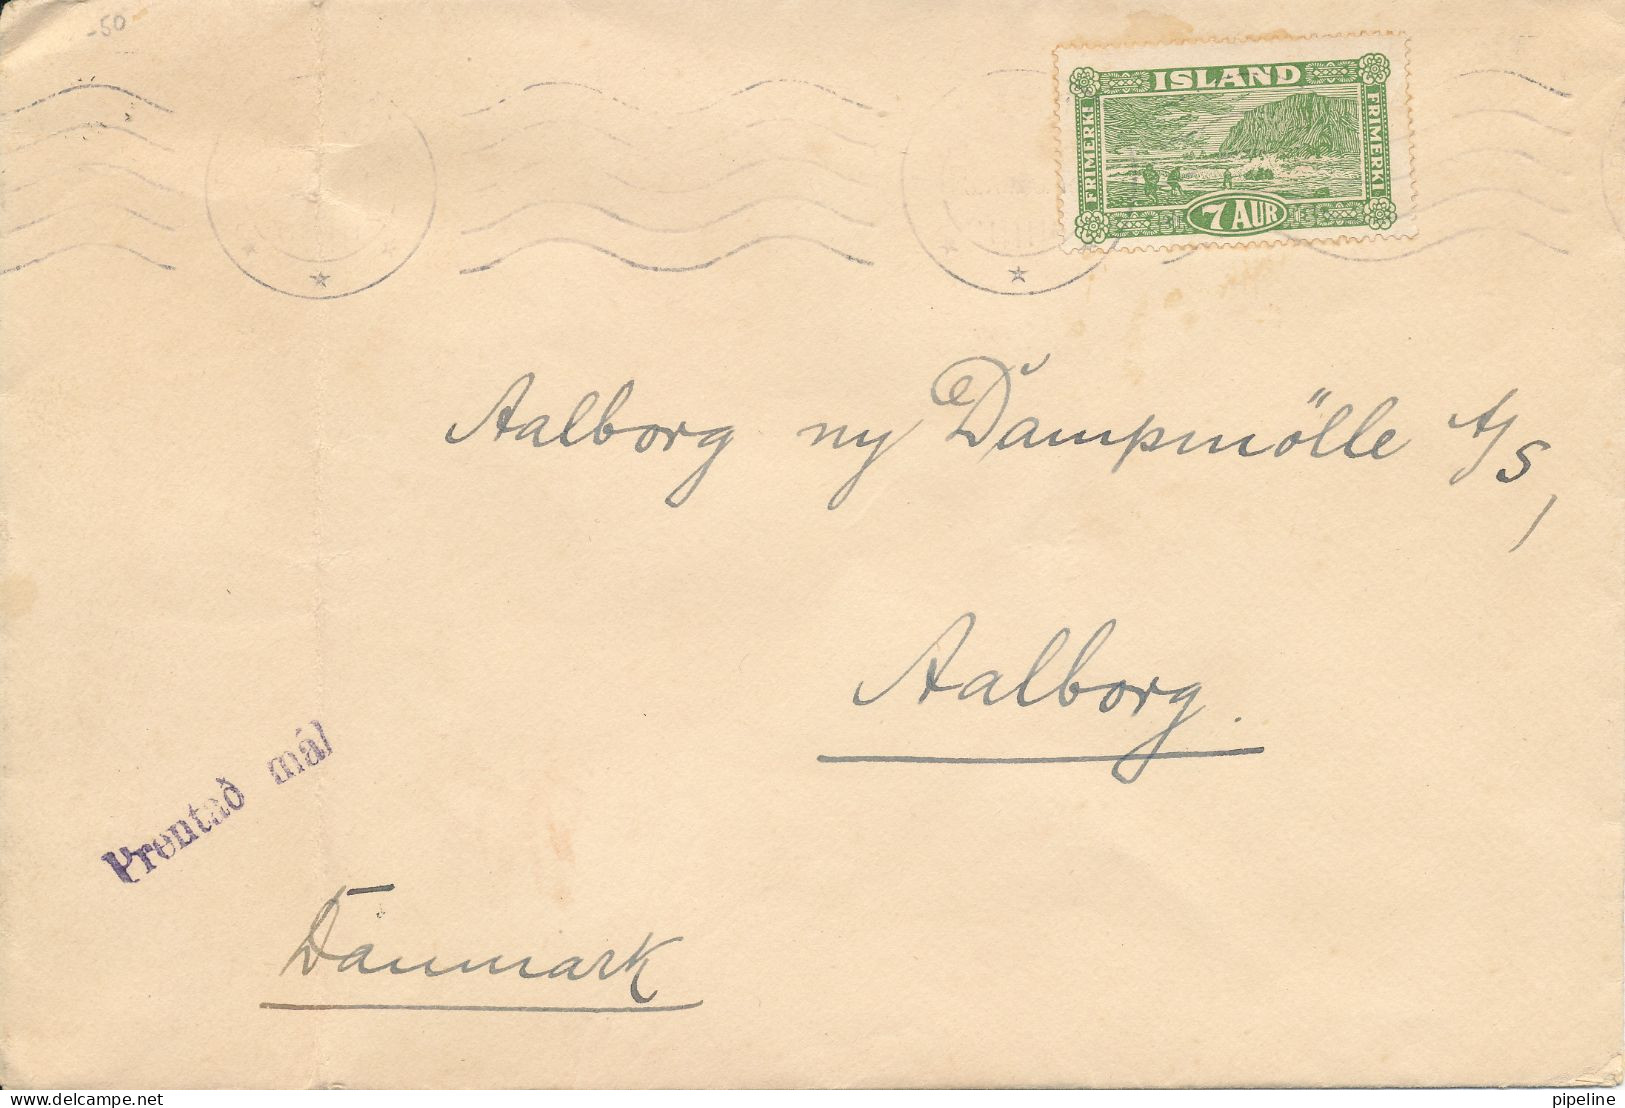 -50
ISLAND
FRIMERKI
FRIMERKI
7 AUR
Aalborg ny Dampmölle A/S,
Aalborg.
Prentað mál
Danmark
delcampe.net
pipeline